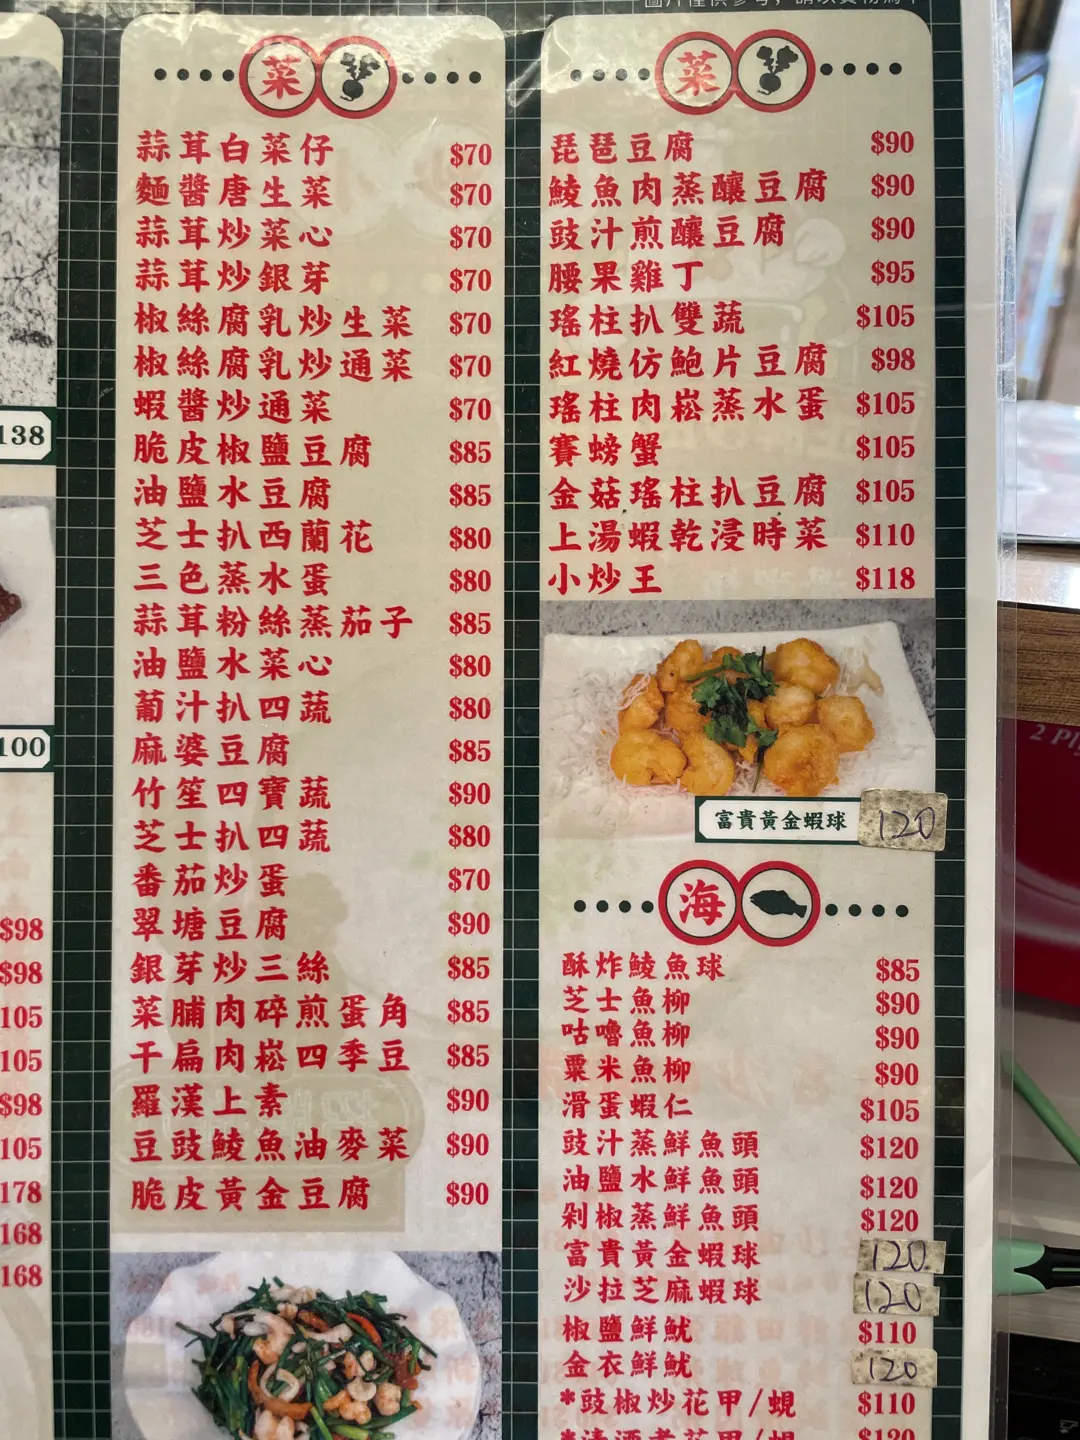 138
100
$98
$98
105
105
$98
105
178
168
168
菜
蒜茸白菜仔 $70
麵醬唐生菜 $70
蒜茸炒菜心 $70
蒜茸炒銀芽 $70
椒絲腐乳炒生菜 $70
椒絲腐乳炒通菜 $70
蝦醬炒通菜 $70
脆皮椒鹽豆腐 $85
油鹽水豆腐 $85
芝士扒西蘭花 $80
三色蒸水蛋 $80
蒜茸粉絲蒸茄子 $85
油鹽水菜心 $80
葡汁扒四蔬 $80
麻婆豆腐 $85
竹笙四寶蔬 $90
芝士扒四蔬 $80
番茄炒蛋 $70
翠塘豆腐 $90
銀芽炒三絲 $85
菜脯肉碎煎蛋角 $85
干扁肉崧四季豆 $85
羅漢上素 $90
豆豉鯪魚油麥菜 $90
脆皮黃金豆腐 $90
菜
琵琶豆腐 $90
鯪魚肉蒸釀豆腐 $90
豉汁煎釀豆腐 $90
腰果雞丁 $95
瑤柱扒雙蔬 $105
紅燒仿鮑片豆腐 $98
瑤柱肉崧蒸水蛋 $105
賽螃蟹 $105
金菇瑤柱扒豆腐 $105
上湯蝦乾浸時菜 $110
小炒王 $118
富貴黃金蝦球 120
海
酥炸鯪魚球 $85
芝士魚柳 $90
咕嚕魚柳 $90
粟米魚柳 $90
滑蛋蝦仁 $105
豉汁蒸鮮魚頭 $120
油鹽水鮮魚頭 $120
剁椒蒸鮮魚頭 $120
富貴黃金蝦球 120
沙拉芝麻蝦球 120
椒鹽鮮魷 $110
金衣鮮魷 120
*豉椒炒花甲/蜆 $110
$120
2 Pl